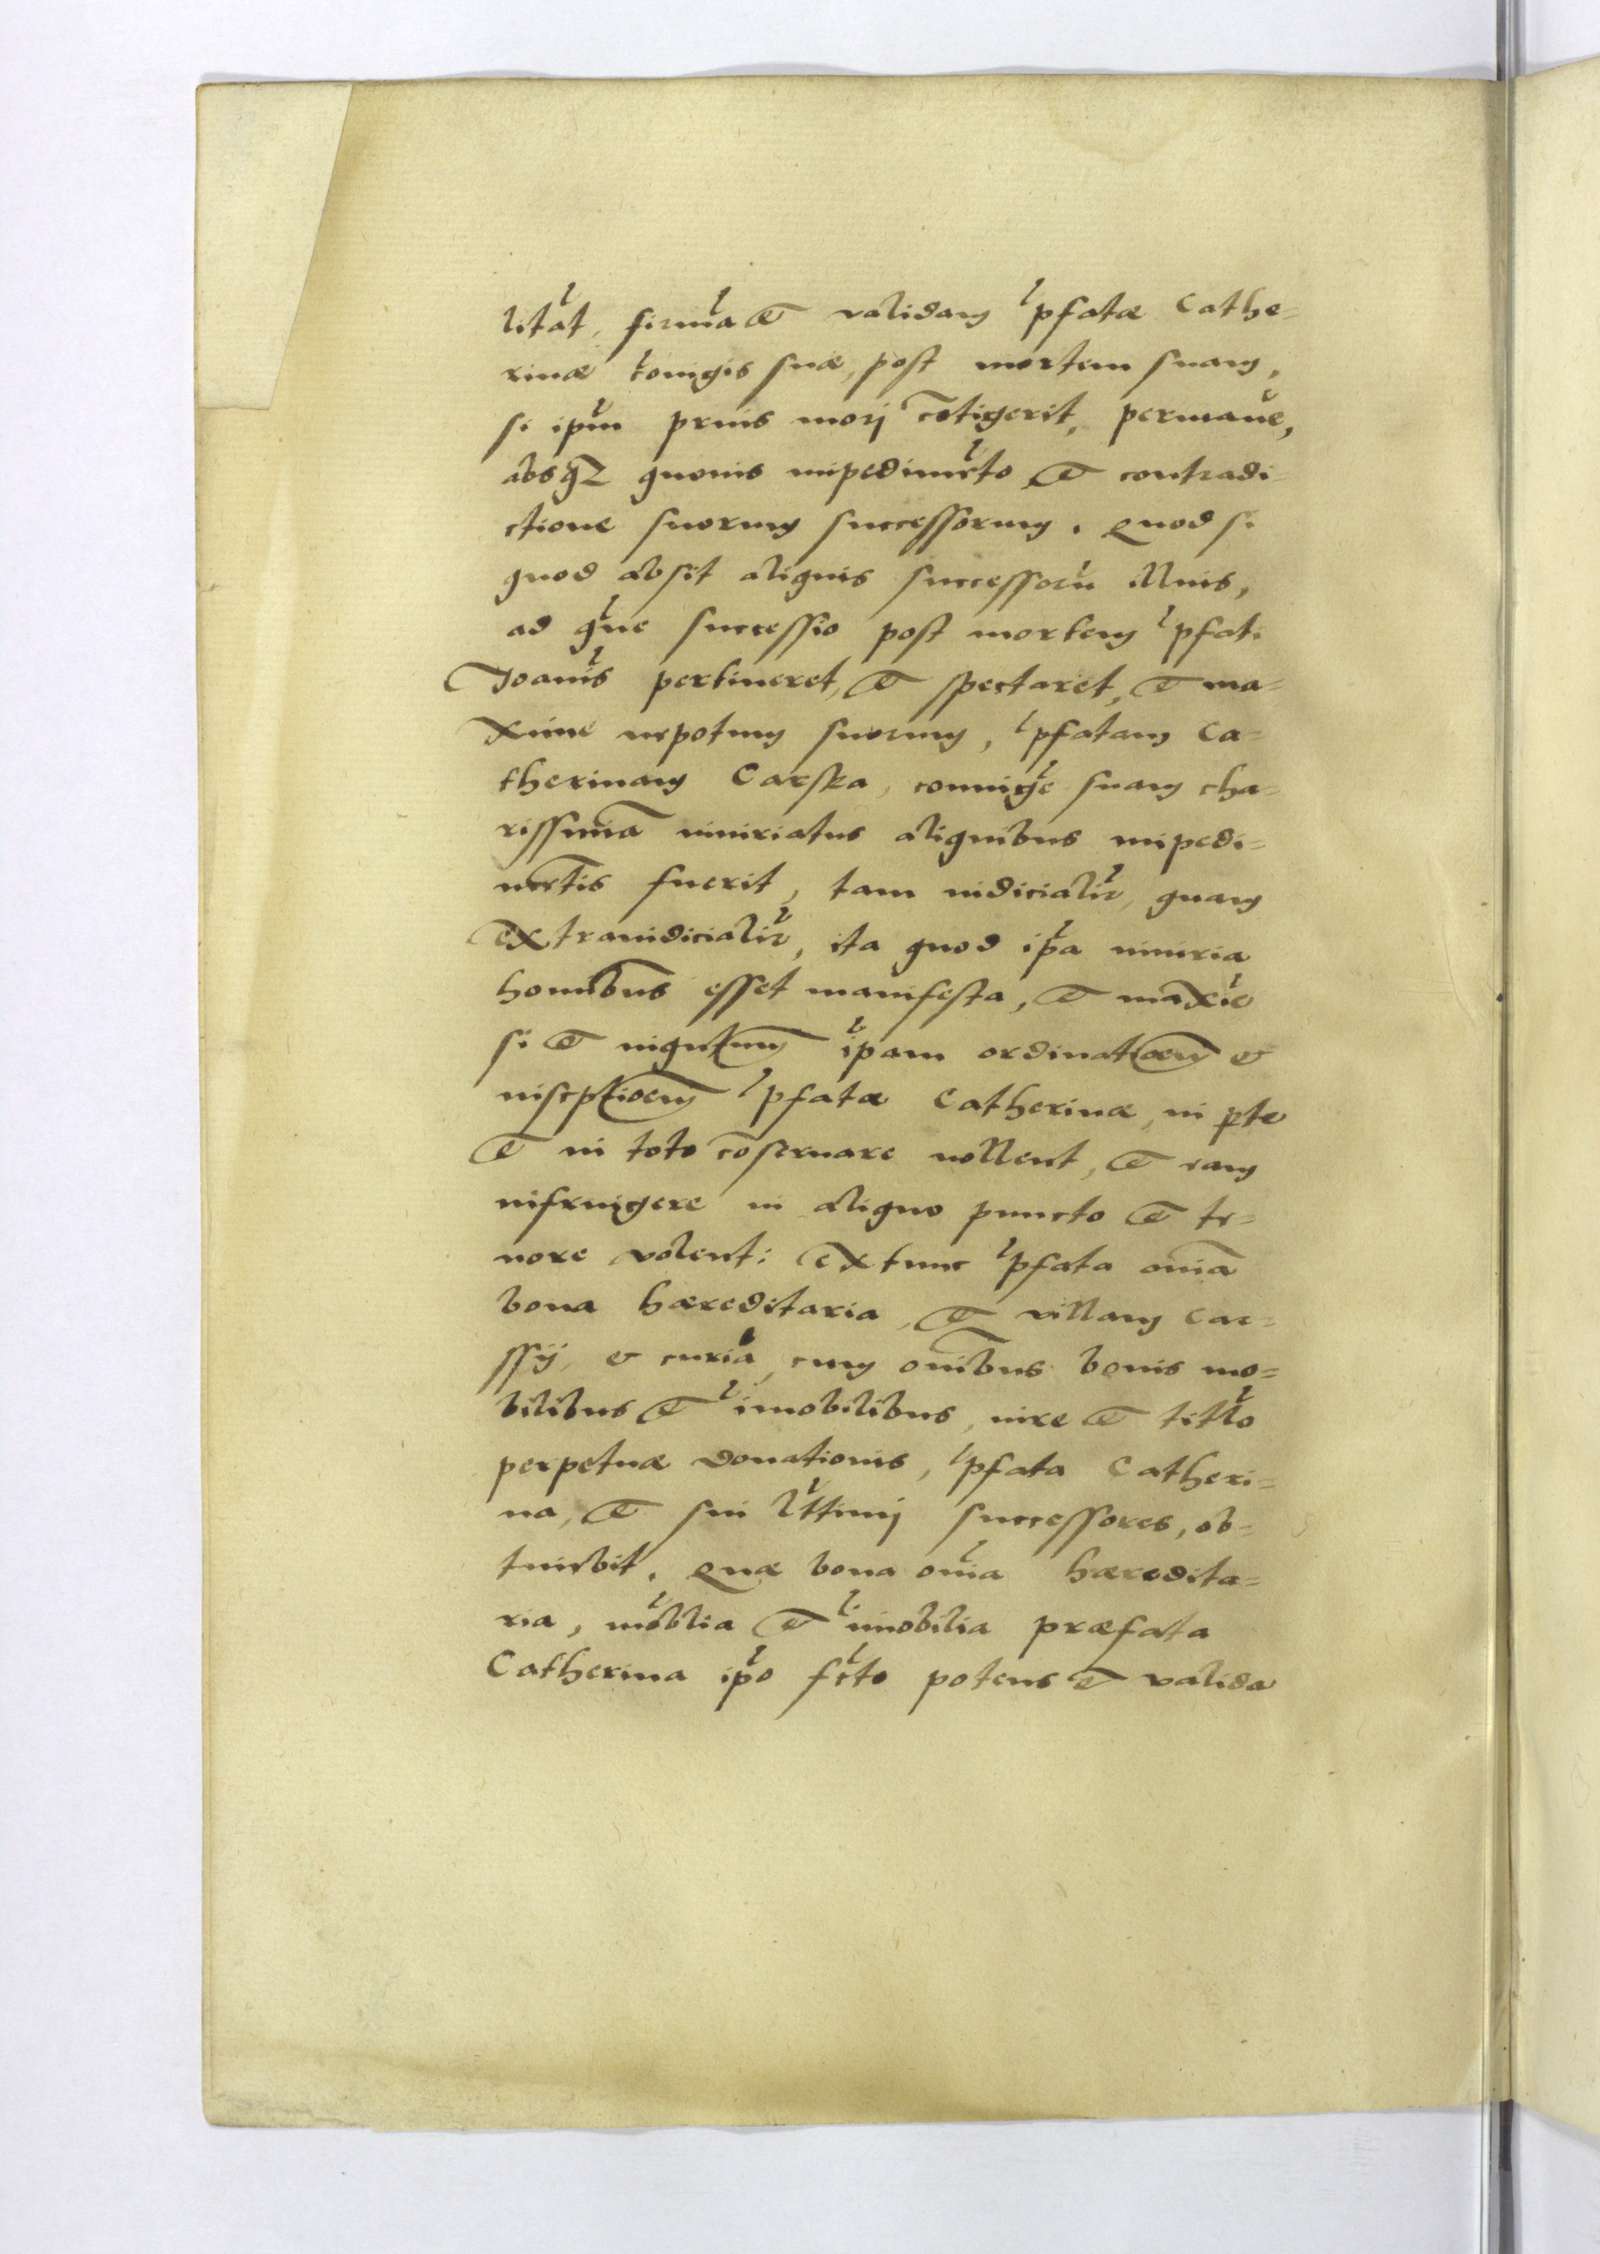 litāt, firmā et validam p̄fatæ Cathe-
rinæ cōiugis suæ, post mortem suam,
si ip̄m prius morj cōtigerit, permanē,
absq3 quouis impedimēto et contradi-
ctione suorum successorum. Quod si
quod absit aliquis successorū illius,
ad quē successio post mortem p̄fati
Joanis pertineret, et spectaret, et ma-
xime nepotum suorum, p̄fatam Ca-
therinam Carska, coniugē suam cha-
rissimā iniuriatus aliquibus impedi-
mētis fuerit, tam iudicialir̄, quam
extraiudicialir̄, ita quod ip̄a iniuria
hominibus esset manifesta, et maxiē
si et ip̄am ordinatioem et
inscptioem p̄fatæ Catherinæ, in pte
et in toto cōseruare nollent, et eam
infringere in aliquo puncto et te-
nore volent: Extunc p̄fata om̄ia
bona hæreditaria, et villam Car-
ssij, et curiā, cum om̄ibus bonis mo-
bilibus et īmobilibus, iure et titlo
perpetuæ donationis, p̄fata Catheri-
na, et sui lttimj successores, ob-
tinebit. Quæ bona om̄ia hæredita-
ria, mōblia et īmobilia præfata
Catherina ip̄o fcto potens et valida